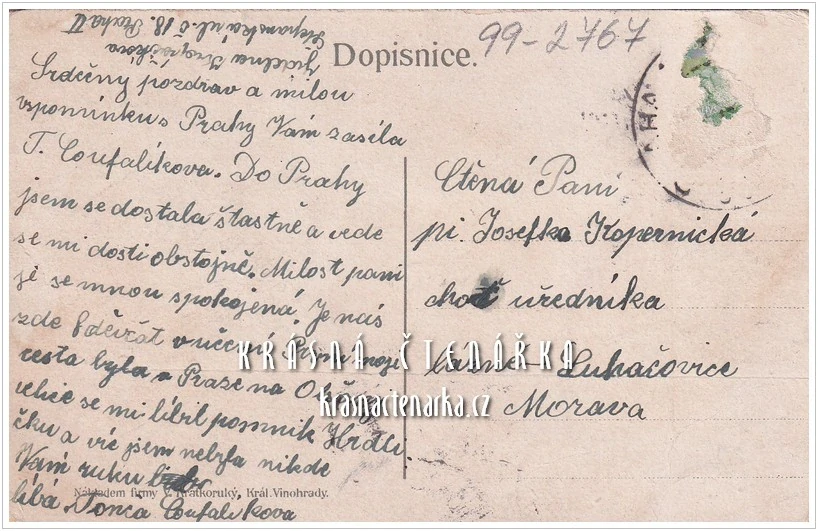 Jídelna
Štěpánská ul. č 18. Praha II
Dopisnice.
99-2767
Srdečný pozdrav a milou
vzpomínku s Prahy Vám zasíla
T. Coufalíkova. Do Prahy
jsem se dostala šťastně a vede
se mi dosti obstojně. Milost paní
je se mnou spokojená. Je nás
zde 8 děvčat v učení. První moje
cesta byla v Praze na
velice se mi líbil pomnik
a víc jsem nebyla nikde
Vám ruku
líbá Tonča Coufalikova
Ctěná Paní
pí. Josefka Kopernická
choť uředníka
lázně - Luhačovice
Morava
KRÁSNÁ ČTENÁŘKA
krasnactenarka.cz
Nákladem firmy V. Krátkoruký, Král. Vinohrady.